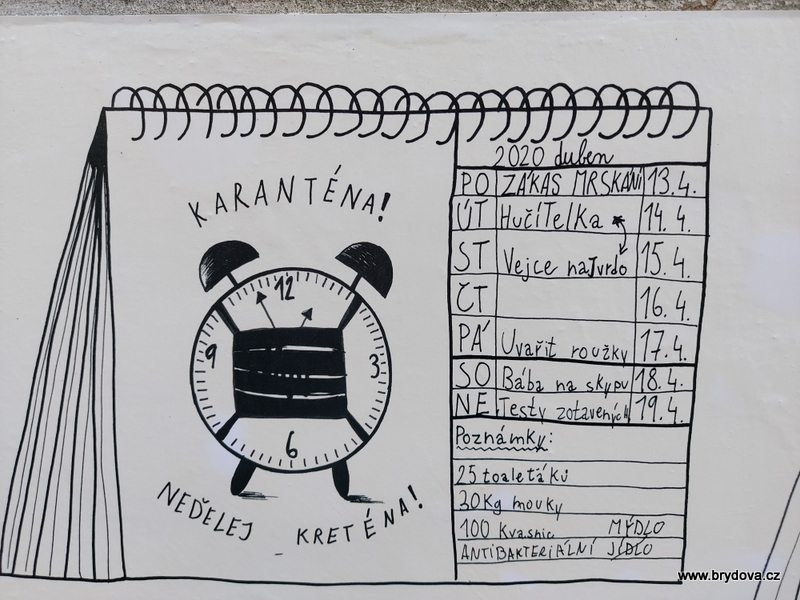 2020 duben
KARANTÉNA!
PO ZÁKAS MRSKÁNÍ 13.4.
ÚT HučíTelka 14.4.
ST Vejce naTvrdo 15.4.
ČT 16.4.
PÁ Uvařit roužky 17.4.
SO Bába na skypu 18.4.
NE Testy zotavených 19.4.
12
9 3
6
NEĎELEJ KRETÉNA!
Poznámky:
25 toaletáků
30Kg mouky
100 kvasnic MÝDLO
ANTIBAKTERIÁLNÍ JÍDLO
www.brydova.cz